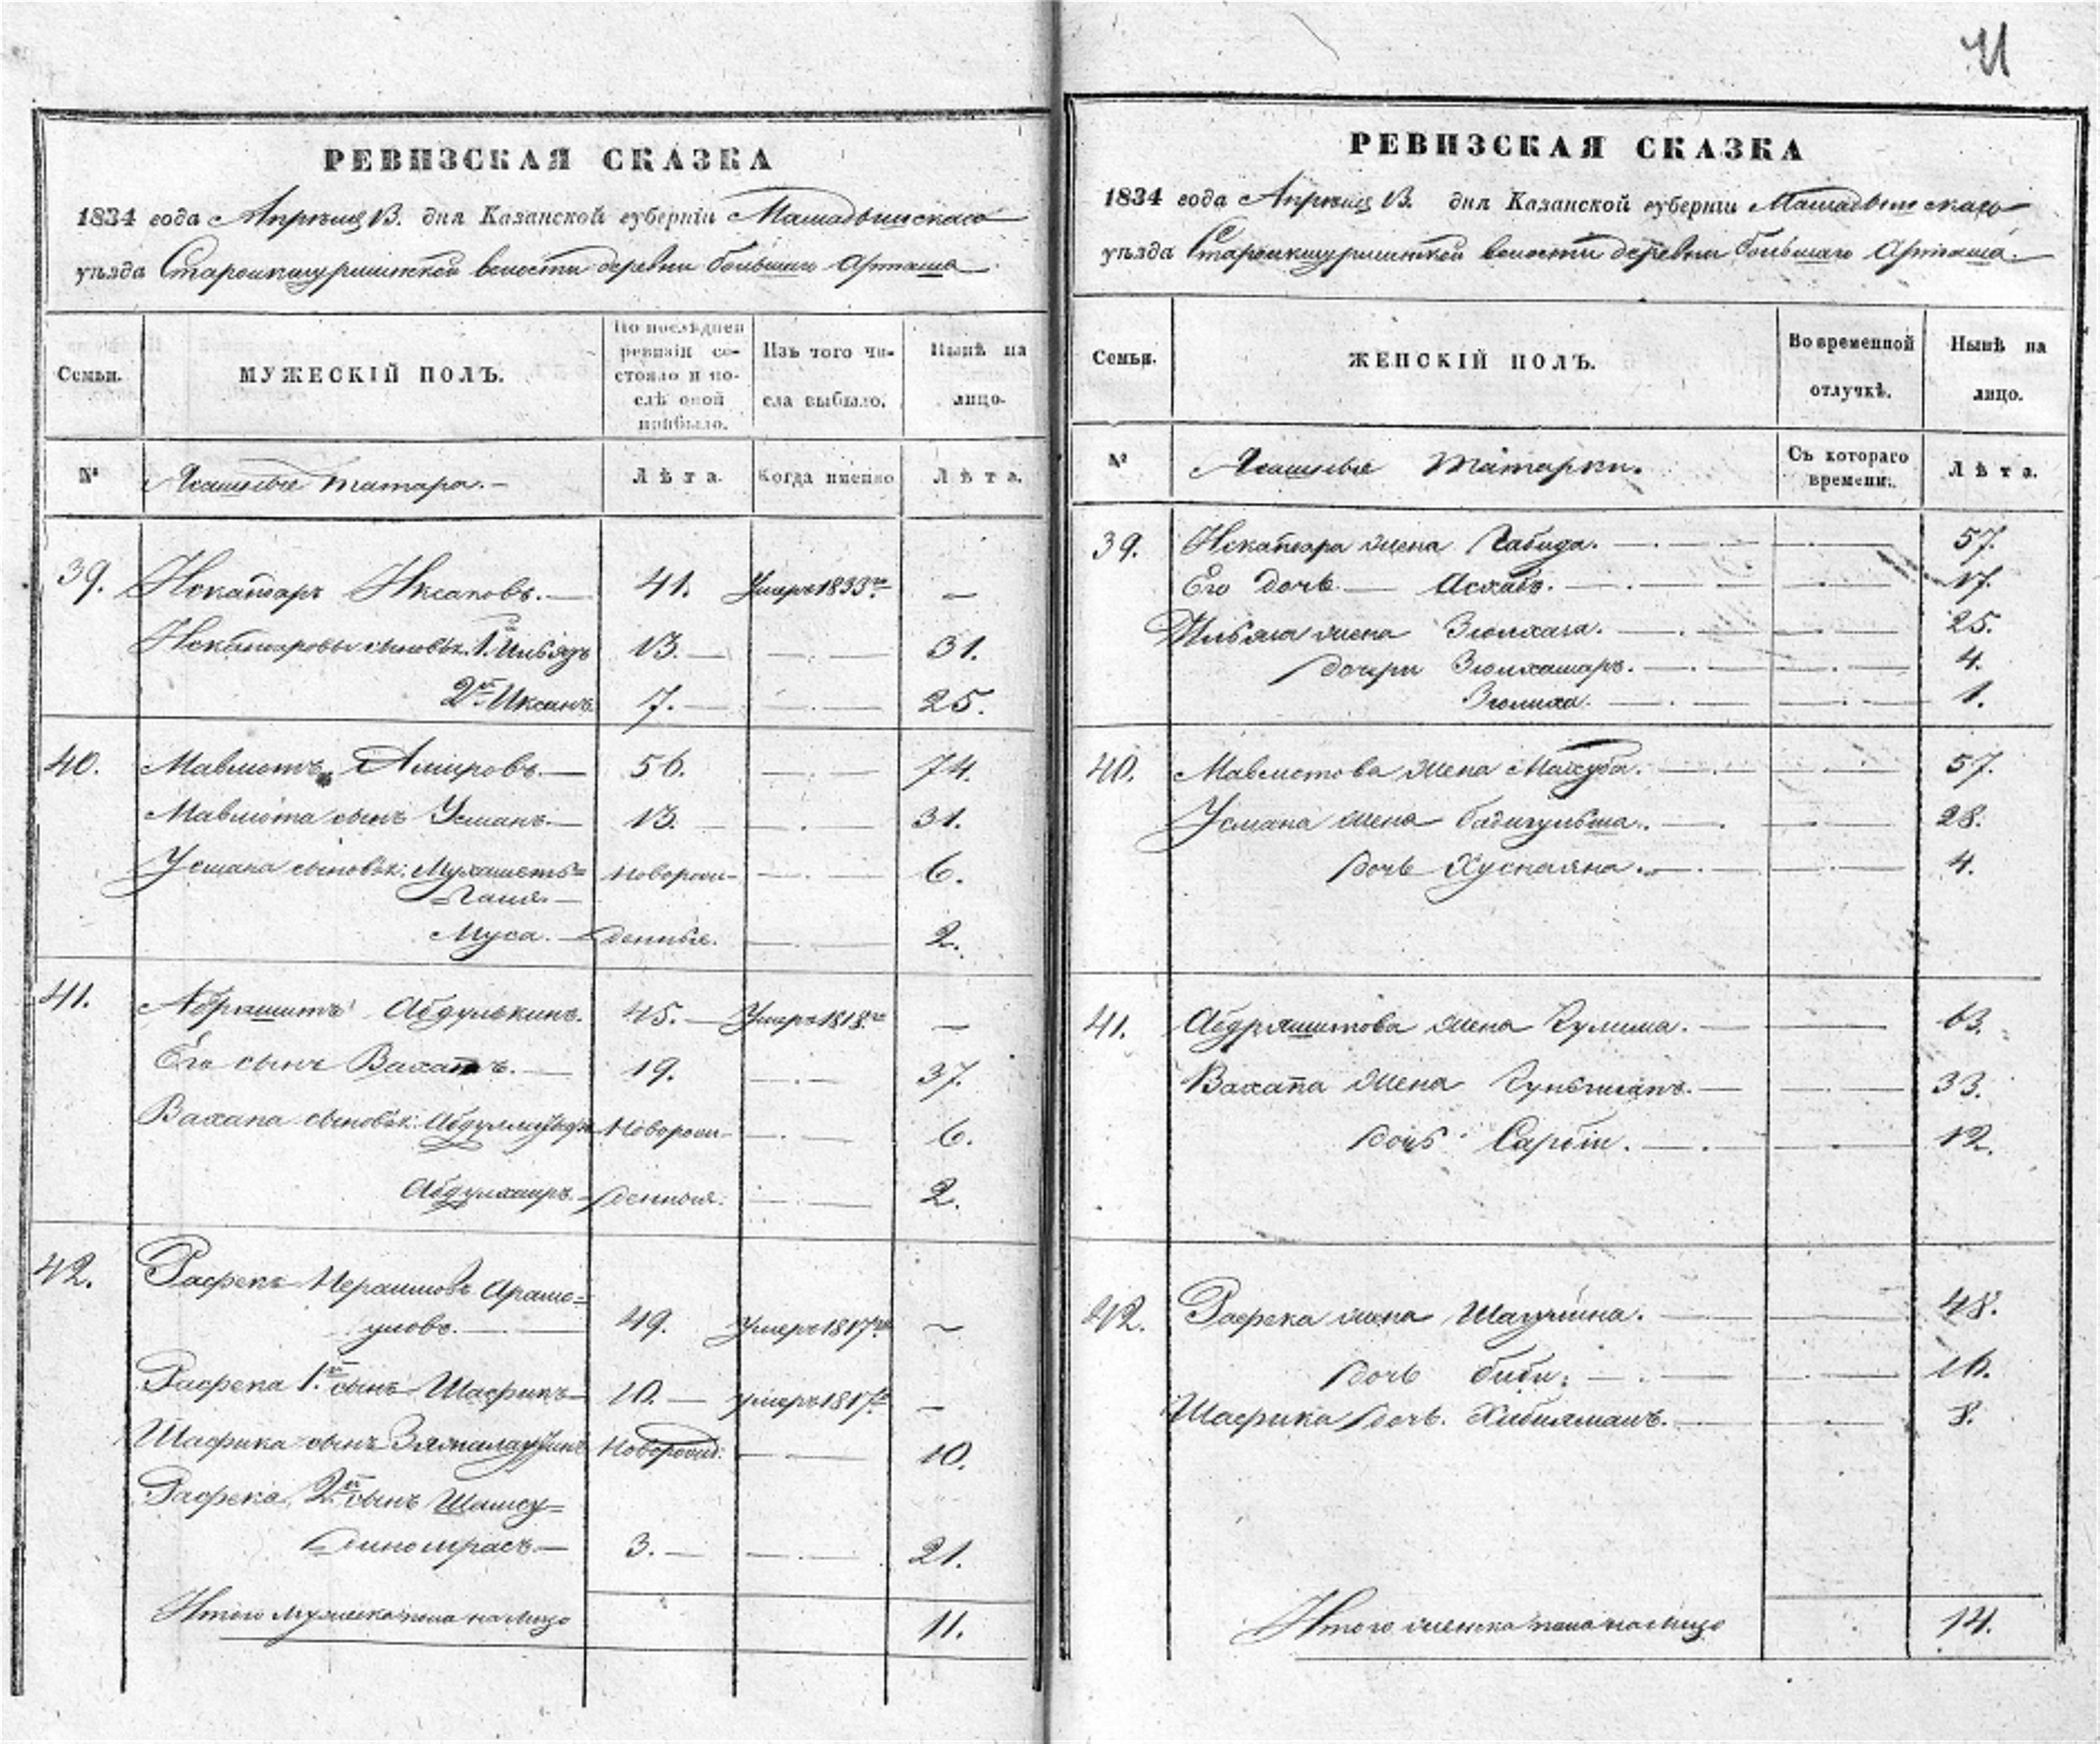 РЕВИЗСКАЯ СКАЗКА
1834 года Апрѣля 13. дня Казанской губерніи Мамадышскаго
уѣзда волости деревни большаго Арташа
Семьи.
МУЖЕСКІЙ ПОЛЪ.
По послѣдней ревизіи состояло и послѣ оной прибыло.
Изъ того числа выбыло.
Нынѣ на лицо.
№
Ясашные татара.
Лѣта.
Когда именно
Лѣта.
39. Искандаръ Иксановъ. — 41. Умеръ 1833го —
Искандаровы сыновья: 1. Ильязъ 13. — — . — 31.
2й Иксанъ. 7. — — . — 25.
40. Мавлютъ Амировъ. — 56. — . — 74.
Мавлюта сынъ Усманъ. — 13. — — . — 31.
Усмана сыновья: Мухаметъ= новорож- — . — 6.
Галей. —
Муса. — денные. — . — 2.
41. Абрашитъ Абдулькинъ. 45. — Умеръ 1818го —
Его сынъ Вахапъ. — 19. — . — 37.
Вахапа сыновья: Новорож- — . — 6.
Абдулхаиръ. денные. — . — 2.
42. Рафекъ
49. Умеръ 1817го —
Рафека 1й сынъ Шафикъ — 10. — умеръ 1817го —
Шафика сынъ Новорожд: — . — 10.
Рафека 2й сынъ Шамсу=
3. — — . — 21.
Итого мужеска пола на лицо 11.
РЕВИЗСКАЯ СКАЗКА
1834 года Апрѣля 13. дня Казанской губерніи Мамадышскаго
уѣзда волости деревни большаго Арташа.
Семьи.
ЖЕНСКІЙ ПОЛЪ.
Во временной отлучкѣ.
Нынѣ на лицо.
№
Ясашные татарки.
Съ котораго времени.
Лѣта.
39. Искандара жена Габида. — . — — . — 57.
Его дочь — Асхабъ. — . — — . — 17.
Ильяза жена — . — — . — 25.
дочери — . — — . — 4.
Зюлиха. — . — — . — 1.
40. Мавлютова жена Махуба. — . — — . — 57.
Усмана жена Бадигульша. — . — — . — 28.
дочь Хуснаяна. — . — — . — 4.
41. Абдряшитова жена Гулима. — 63.
Вахапа жена — — . — 33.
дочь Сарби. — . — — . — 12.
42. Рафека жена — — . — 48.
дочь биби. — . — — . — 16.
Шафика дочь. — — . — 8.
Итого женска пола на лицо 14.